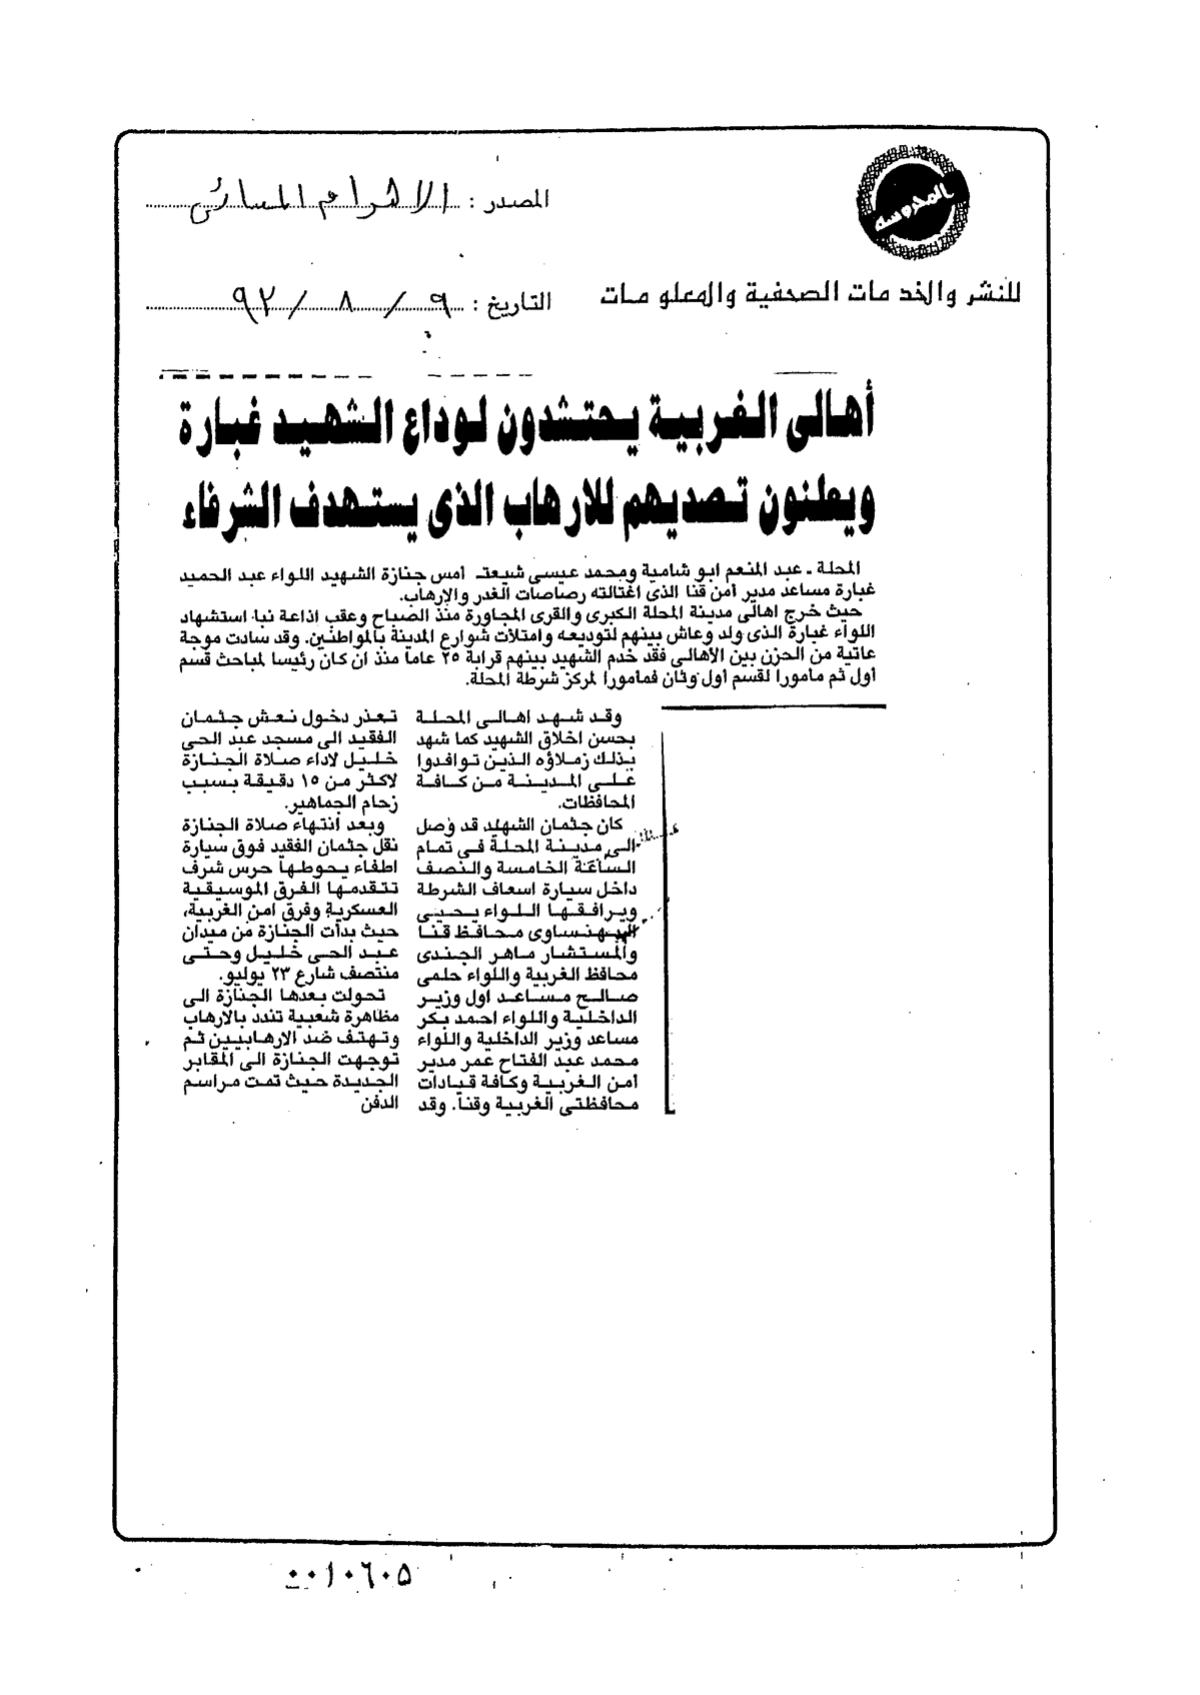 المحروسة
المصدر : الاهرام المسائى
للنشر والخدمات الصحفية والمعلومات
التاريخ : ٩ / ٨ / ٩٢
أهالى الغربية يحتشدون لوداع الشهيد غبارة
ويعلنون تصديهم للارهاب الذى يستهدف الشرفاء
المحلة ـ عبد المنعم ابو شامية ومحمد عيسى شيعت أمس جنازة الشهيد اللواء عبد الحميد
غبارة مساعد مدير أمن قنا الذى اغتالته رصاصات الغدر والإرهاب.
حيث خرج اهالى مدينة المحلة الكبرى والقرى المجاورة منذ الصباح وعقب اذاعة نبأ استشهاد
اللواء غبارة الذى ولد وعاش بينهم لتوديعه وامتلأت شوارع المدينة بالمواطنين. وقد سادت موجة
عاتية من الحزن بين الأهالى فقد خدم الشهيد بينهم قرابة ٢٥ عاما منذ ان كان رئيسا لمباحث قسم
أول ثم مأمورا لقسم أول وثان فمأمورا لمركز شرطة المحلة.
وقد شهد اهالى المحلة
بحسن اخلاق الشهيد كما شهد
بذلك زملاؤه الذين توافدوا
على المدينة من كافة
المحافظات.
كان جثمان الشهيد قد وصل
الى مدينة المحلة فى تمام
الساعة الخامسة والنصف
داخل سيارة اسعاف الشرطة
ويرافقها اللواء يحيى
البهنساوى محافظ قنا
والمستشار ماهر الجندى
محافظ الغربية واللواء حلمى
صالح مساعد اول وزير
الداخلية واللواء احمد بكر
مساعد وزير الداخلية واللواء
محمد عبد الفتاح عمر مدير
أمن الغربية وكافة قيادات
محافظتى الغربية وقنا. وقد
تعذر دخول نعش جثمان
الفقيد الى مسجد عبد الحى
خليل لاداء صلاة الجنازة
لاكثر من ١٥ دقيقة بسبب
زحام الجماهير.
وبعد انتهاء صلاة الجنازة
نقل جثمان الفقيد فوق سيارة
اطفاء يحوطها حرس شرف
تتقدمها الفرق الموسيقية
العسكرية وفرق امن الغربية،
حيث بدأت الجنازة من ميدان
عبد الحى خليل وحتى
منتصف شارع ٢٣ يوليو.
تحولت بعدها الجنازة الى
مظاهرة شعبية تندد بالارهاب
وتهتف ضد الارهابيين ثم
توجهت الجنازة الى المقابر
الجديدة حيث تمت مراسم
الدفن
٠٠١٠٦٠٥